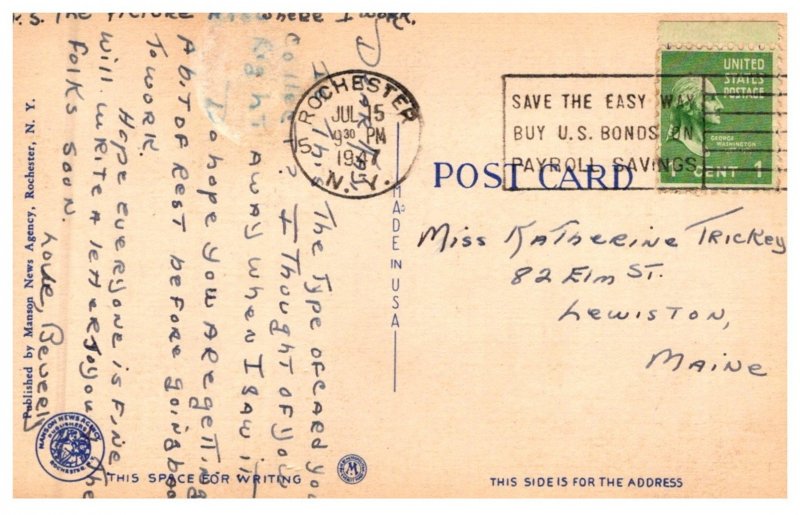 P.S. The Picture is where I work.
DARling
Is This The Type of card you
Collect? I Thought of you
Right AWAY when I saw it
Do hope you are getting
A bit of rest before going back
To work.
Hope everyone is fine
Will write a letter to you The
folks soon.
Love, Beverly
Published by Manson News Agency, Rochester, N. Y.
MANSON NEWS AGENCY
PUBLISHERS
ROCHESTER
THIS SPACE FOR WRITING
MADE IN USA
ROCHESTER
JUL 15
9 30 PM
1947
N.Y.
5
SAVE THE EASY WAY
BUY U.S. BONDS ON
PAYROLL SAVINGS
UNITED
STATES
POSTAGE
GEORGE
WASHINGTON
1 CENT 1
POST CARD
Miss Katherine Trickey
82 Elm St.
Lewiston,
Maine
THIS SIDE IS FOR THE ADDRESS